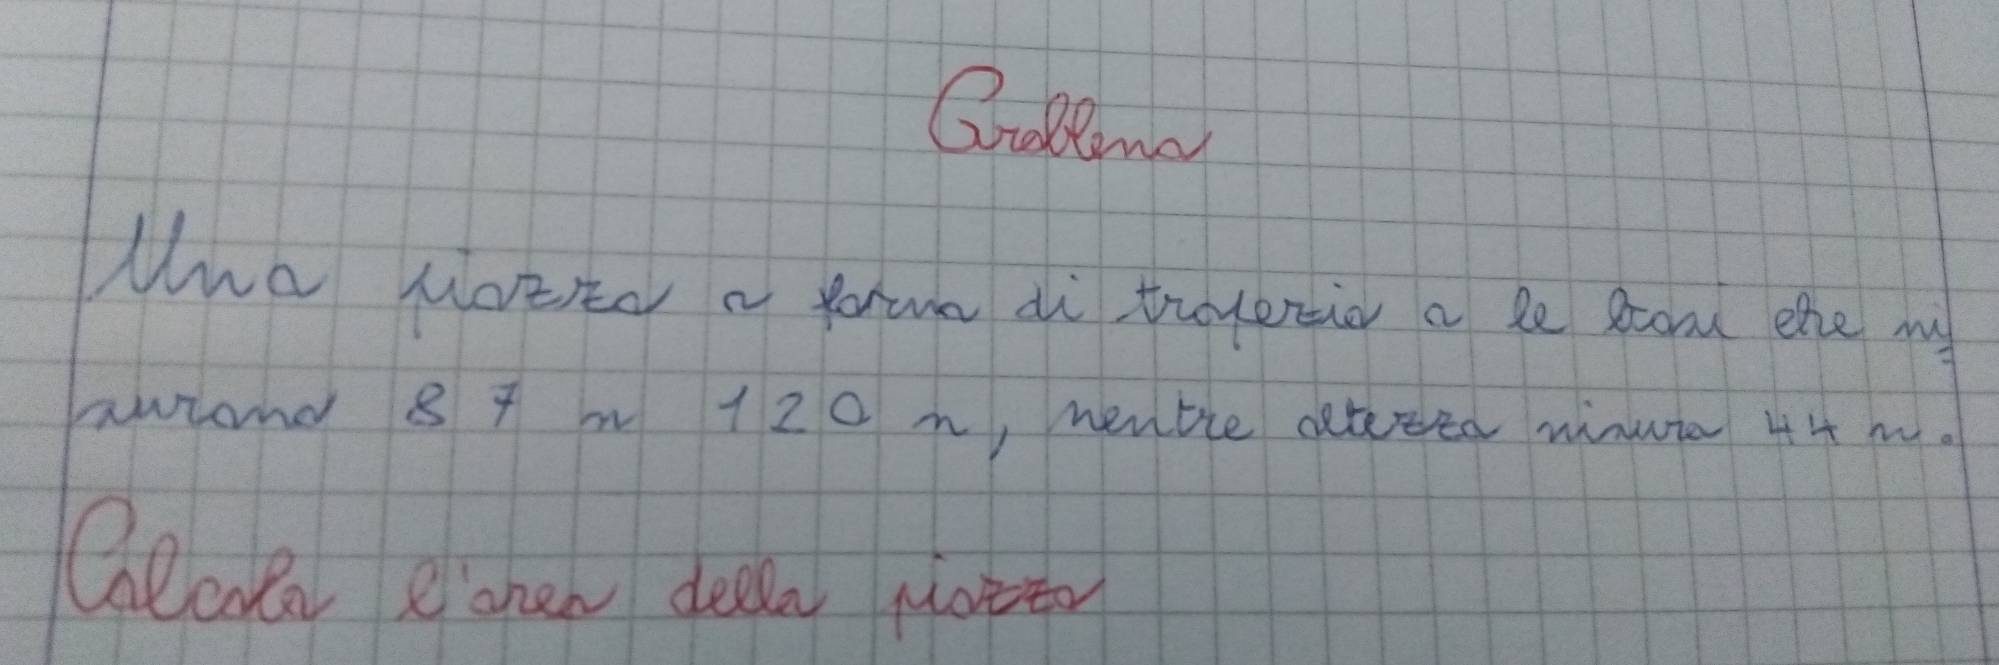 Problema
Una piazza a forma di trapezio a le basi che mi=
surano 87 m 120 m, mentre altezza misura 44 m.
Calcola l'area della piazza